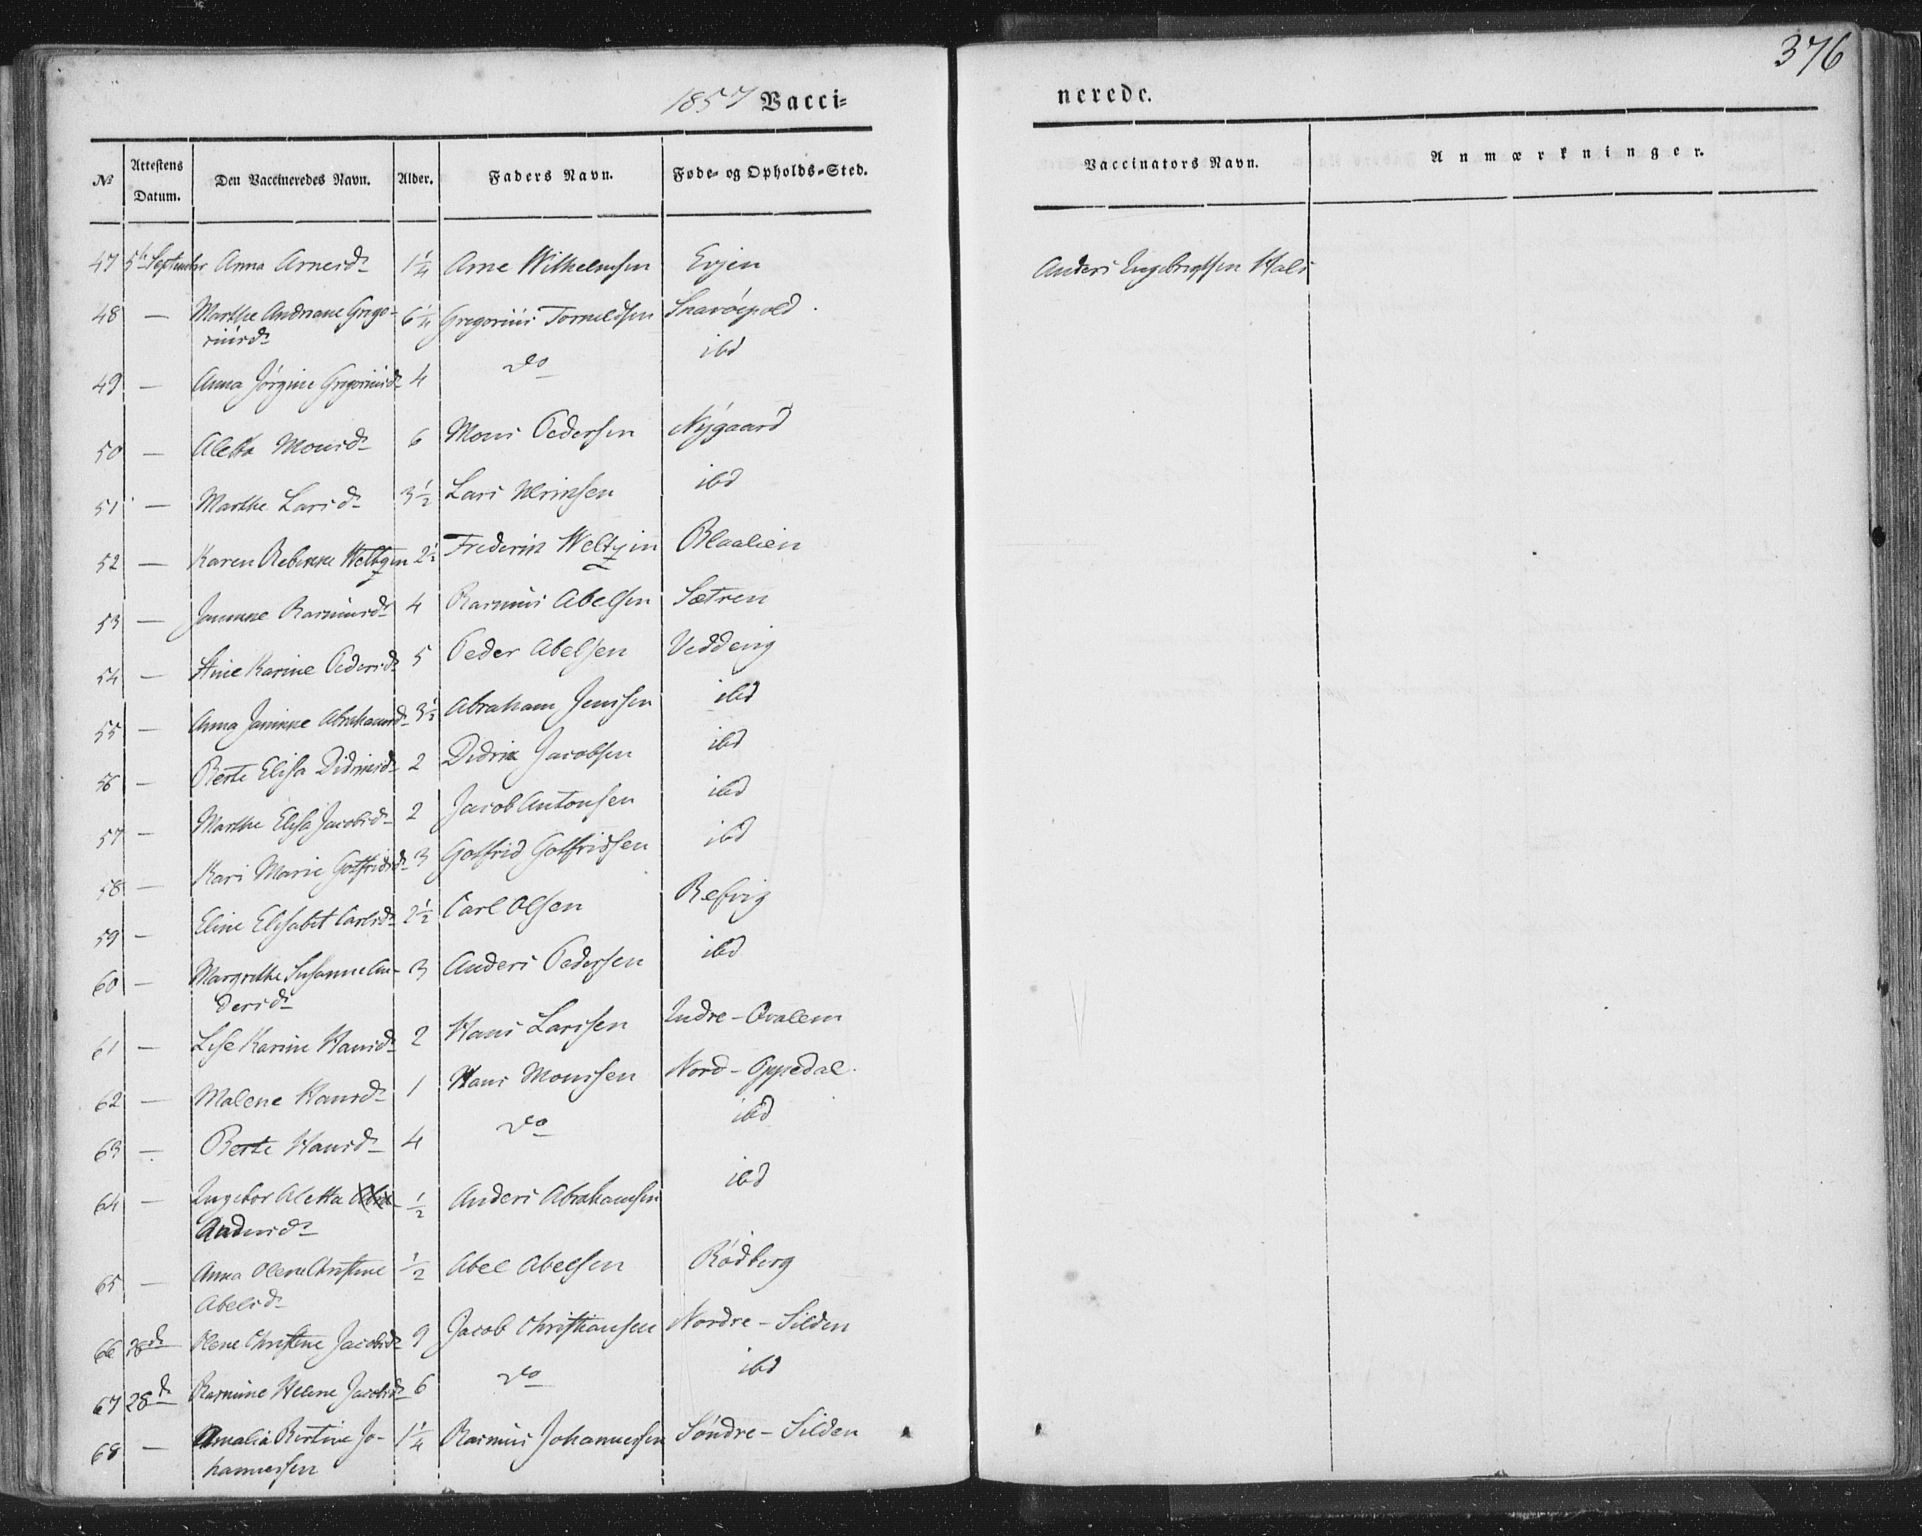 376
1857 Vacci=
nerede.
№ Attestens Datum. Den Vaccineredes Navn. Alder. Faders Navn. Føde- og Opholds-Sted.
Vaccinators Navn. Anmærkninger.
47 5te September Anna Arnesdr 1 1/4 Arne Wilhelmsen Evjen Anders Engebregtsen Hals
48 — Marthe Andriane Grigo-
riusdr 6 1/4 Gregorius Torneldsen
49 — Anna Jørgine Gregoriusdr 4 do ibd
50 — Aletta Monsdr 6 Mons Pedersen Nygaard
51 — Marthe Larsdr 3 1/2 Lars Ulriksen ibd
52 — Karen Rebekke Weltzin 2 1/2 Frederik Weltzin Blaalien
53 — Jannike Rasmusdr 4 Rasmus Abelsen Sætren
54 — Stine Karine Pedersdr 5 Peder Abelsen Vedderig
55 — Anna Jannike Abrahamsdr 3 1/2 Abraham Jenssen ibd
56 — Berte Elisa Didriksdr 2 Didrik Jacobsen ibd
57 — Marthe Elisa Jacobsdr 2 Jacob Antonsen ibd
58 — Kari Marie Gotfridsdr 3 Gotfrid Gotfridsen ibd
59 — Eline Elisabet Carlsdr 2 1/2 Carl Olsen Refvig
60 — Margrethe Susanne An-
dersdr 3 Anders Pedersen ibd
61 — Lise Karine Hansdr 2 Hans Larssen Indre-Qvalem
62 — Malene Hansdr 1 Hans Monssen Nord-Oppedal
63 — Berte Hansdr 4 do ibd
64 — Ingebor Aletta Abra-
Andersdr 1/2 Anders Abrahamsen ibd
65 — Anna Olene Christine
Abelsdr 1/2 Abel Abelsen Rødberg
66 28d Olene Christine Jacobsdr 9 Jacob Christiansen Nordre-Silden
67 28d Rasmine Helene Jacobsdr 6 do ibd
68 — Amalia Bertine Jo-
hannessen 1 1/4 Rasmus Johannessen Søndre-Silden